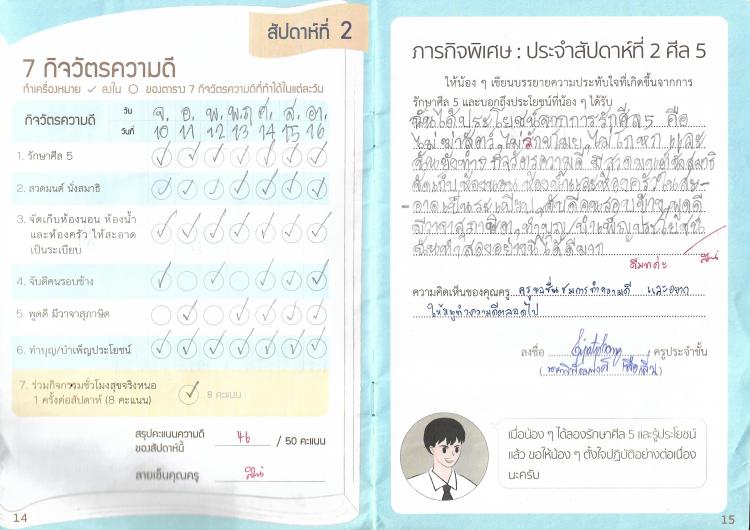 สัปดาห์ที่ 2
7 กิจวัตรความดี
ทำเครื่องหมาย ✓ ลงใน ○ ของตาราง 7 กิจวัตรความดีที่ทำได้ในแต่ละวัน
กิจวัตรความดี วัน จ. อ. พ. พฤ ศ. ส. อา.
วันที่ 10 11 12 13 14 15 16
1. รักษาศีล 5 ✓ ✓ ✓ ✓ ✓ ✓ ✓
2. สวดมนต์ นั่งสมาธิ ✓ ✓ ✓ ✓ ✓ ✓ ✓
3. จัดเก็บห้องนอน ห้องน้ำ
และห้องครัว ให้สะอาด
เป็นระเบียบ
4. จับดีคนรอบข้าง
5. พูดดี มีวาจาสุภาษิต
6. ทำบุญ/บำเพ็ญประโยชน์ ✓ ✓ ✓ ✓ ✓ ✓ ✓
7. ร่วมกิจกรรมชั่วโมงสุขจริงหนอ
1 ครั้งต่อสัปดาห์ (8 คะแนน) ✓ 8 คะแนน
สรุปคะแนนความดี
ของสัปดาห์นี้ 46 / 50 คะแนน
ลายเซ็นคุณครู
14
ภารกิจพิเศษ : ประจำสัปดาห์ที่ 2 ศีล 5
ให้น้อง ๆ เขียนบรรยายความประทับใจที่เกิดขึ้นจากการ
รักษาศีล 5 และบอกถึงประโยชน์ที่น้อง ๆ ได้รับ
ฉันได้ประโยชน์จากการรักศีล 5 คือ
ไม่ฆ่าสัตว์ ไม่ลักขโมย ไม่โกหก และ
ฉันยังทำกิจวัตรความดี มีสวดมนต์นั่งสมาธิ
จัดเก็บห้องนอน ห้องน้ำและห้องครัวให้สะ-
-อาดเป็นระเบียบ จับดีคนรอบข้าง พูดดี
มีวาจาสุภาษิต ทำบุญ/บำเพ็ญประโยชน์
ฉันทำสองอย่างนี้ได้ดีมาก
ดีมากค่ะ
ความคิดเห็นของคุณครู ครูขอชื่นชมการทำความดี และอยาก
ให้หนูทำความดีตลอดไป
ลงชื่อ ครูประจำชั้น
เมื่อน้อง ๆ ได้ลองรักษาศีล 5 และรู้ประโยชน์
แล้ว ขอให้น้อง ๆ ตั้งใจปฏิบัติอย่างต่อเนื่อง
นะครับ
15